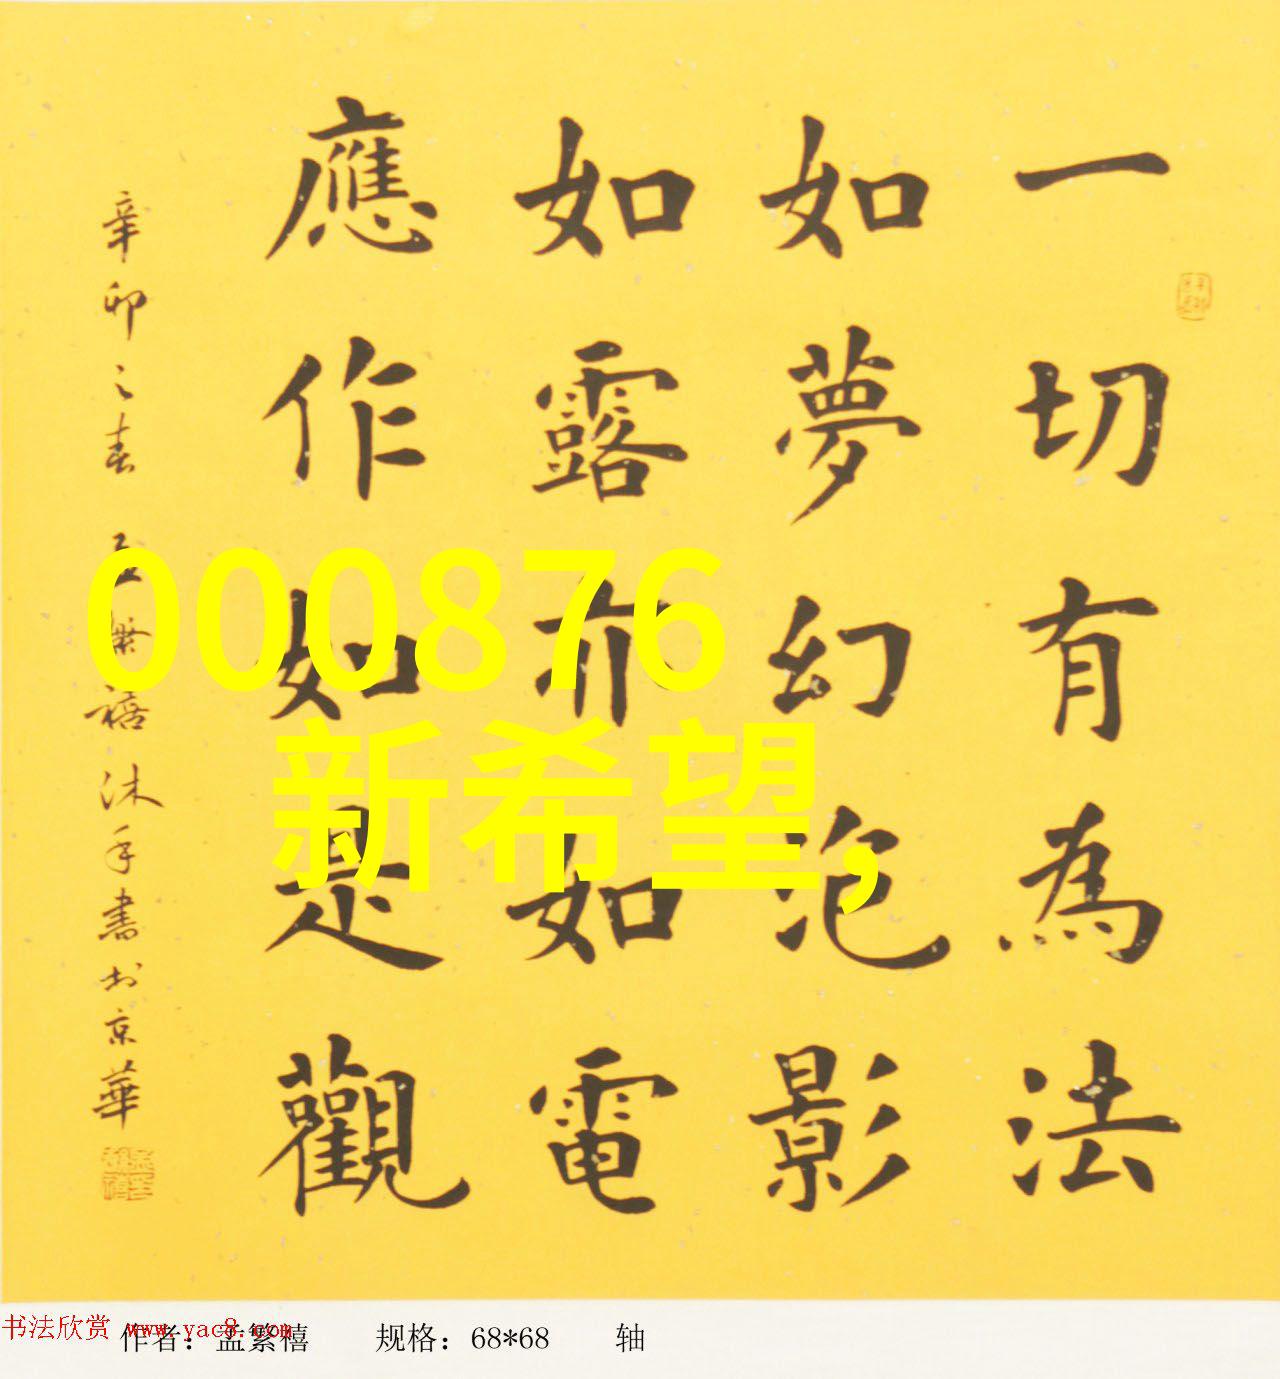 一切有為法
如夢幻泡影
如露亦如電
應作如是觀
辛卯之春 孟繁禧沐手書於京華
000876
新希望,
书法欣赏 www.yac8.com
作者：孟繁禧 规格：68*68 轴